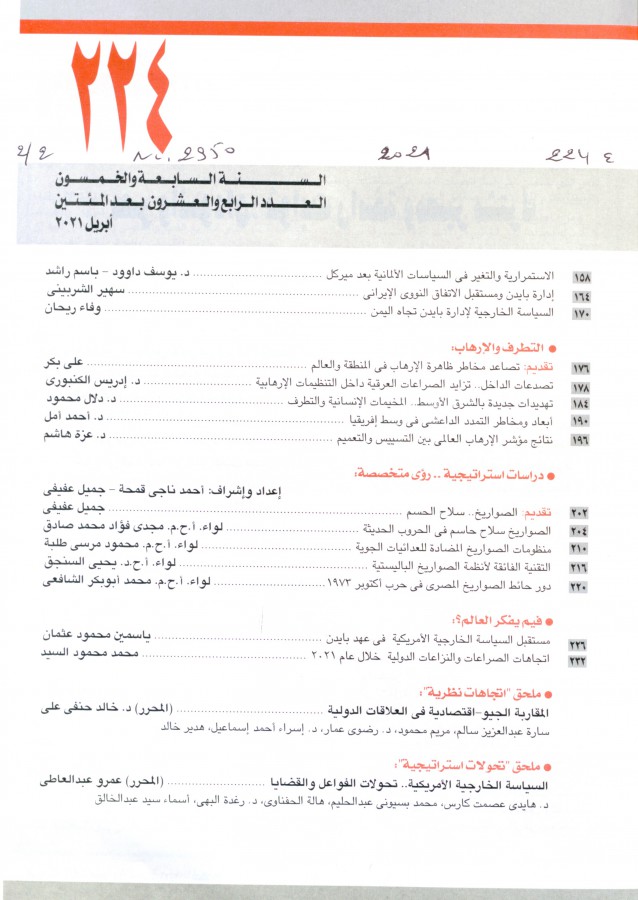 ٢٢٤
2/2 Nu. 2950 2021 224 ع
الســـنة السابعة والخمسون
العدد الرابع والعشرون بعد المئتين
أبريل ٢٠٢١
١٥٨ الاستمرارية والتغير فى السياسات الألمانية بعد ميركل ........ د. يوسف داوود - باسم راشد
١٦٤ إدارة بايدن ومستقبل الاتفاق النووى الإيرانى ........ سهير الشربينى
١٧٠ السياسة الخارجية لإدارة بايدن تجاه اليمن ........ وفاء ريحان
● التطرف والإرهاب:
١٧٦ تقديم: تصاعد مخاطر ظاهرة الإرهاب فى المنطقة والعالم ........ على بكر
١٧٨ تصدعات الداخل.. تزايد الصراعات العرقية داخل التنظيمات الإرهابية ........ د. إدريس الكنبورى
١٨٤ تهديدات جديدة بالشرق الأوسط.. المخيمات الإنسانية والتطرف ........ د. دلال محمود
١٩٠ أبعاد ومخاطر التمدد الداعشى فى وسط إفريقيا ........ د. أحمد أمل
١٩٦ نتائج مؤشر الإرهاب العالمى بين التسييس والتعميم ........ د. عزة هاشم
● دراسات استراتيجية .. رؤى متخصصة:
إعداد وإشراف: أحمد ناجى قمحة - جميل عفيفى
٢٠٢ تقديم: الصواريخ.. سلاح الحسم ........ جميل عفيفى
٢٠٤ الصواريخ سلاح حاسم فى الحروب الحديثة ........ لواء. أ.ح.م. مجدى فؤاد محمد صادق
٢١٠ منظومات الصواريخ المضادة للعدائيات الجوية ........ لواء. أ.ح.م. محمود مرسى طلبة
٢١٦ التقنية الفائقة لأنظمة الصواريخ الباليستية ........ لواء. أ.ح.د. يحيى السنجق
٢٢٠ دور حائط الصواريخ المصرى فى حرب أكتوبر ١٩٧٣ ........ لواء. أ.ح.م. محمد أبوبكر الشافعى
● فيم يفكر العالم؟:
٢٢٦ مستقبل السياسة الخارجية الأمريكية فى عهد بايدن ........ ياسمين محمود عثمان
٢٣٢ اتجاهات الصراعات والنزاعات الدولية خلال عام ٢٠٢١ ........ محمد محمود السيد
● ملحق "اتجاهات نظرية":
المقاربة الجيو-اقتصادية فى العلاقات الدولية ........ (المحرر) د. خالد حنفى على
سارة عبدالعزيز سالم، مريم محمود، د. رضوى عمار، د. إسراء أحمد إسماعيل، هدير خالد
● ملحق "تحولات استراتيجية":
السياسة الخارجية الأمريكية.. تحولات الفواعل والقضايا ........ (المحرر) عمرو عبدالعاطى
د. هايدى عصمت كارس، محمد بسيونى عبدالحليم، هالة الحفناوى، د. رغدة البهى، أسماء سيد عبدالخالق